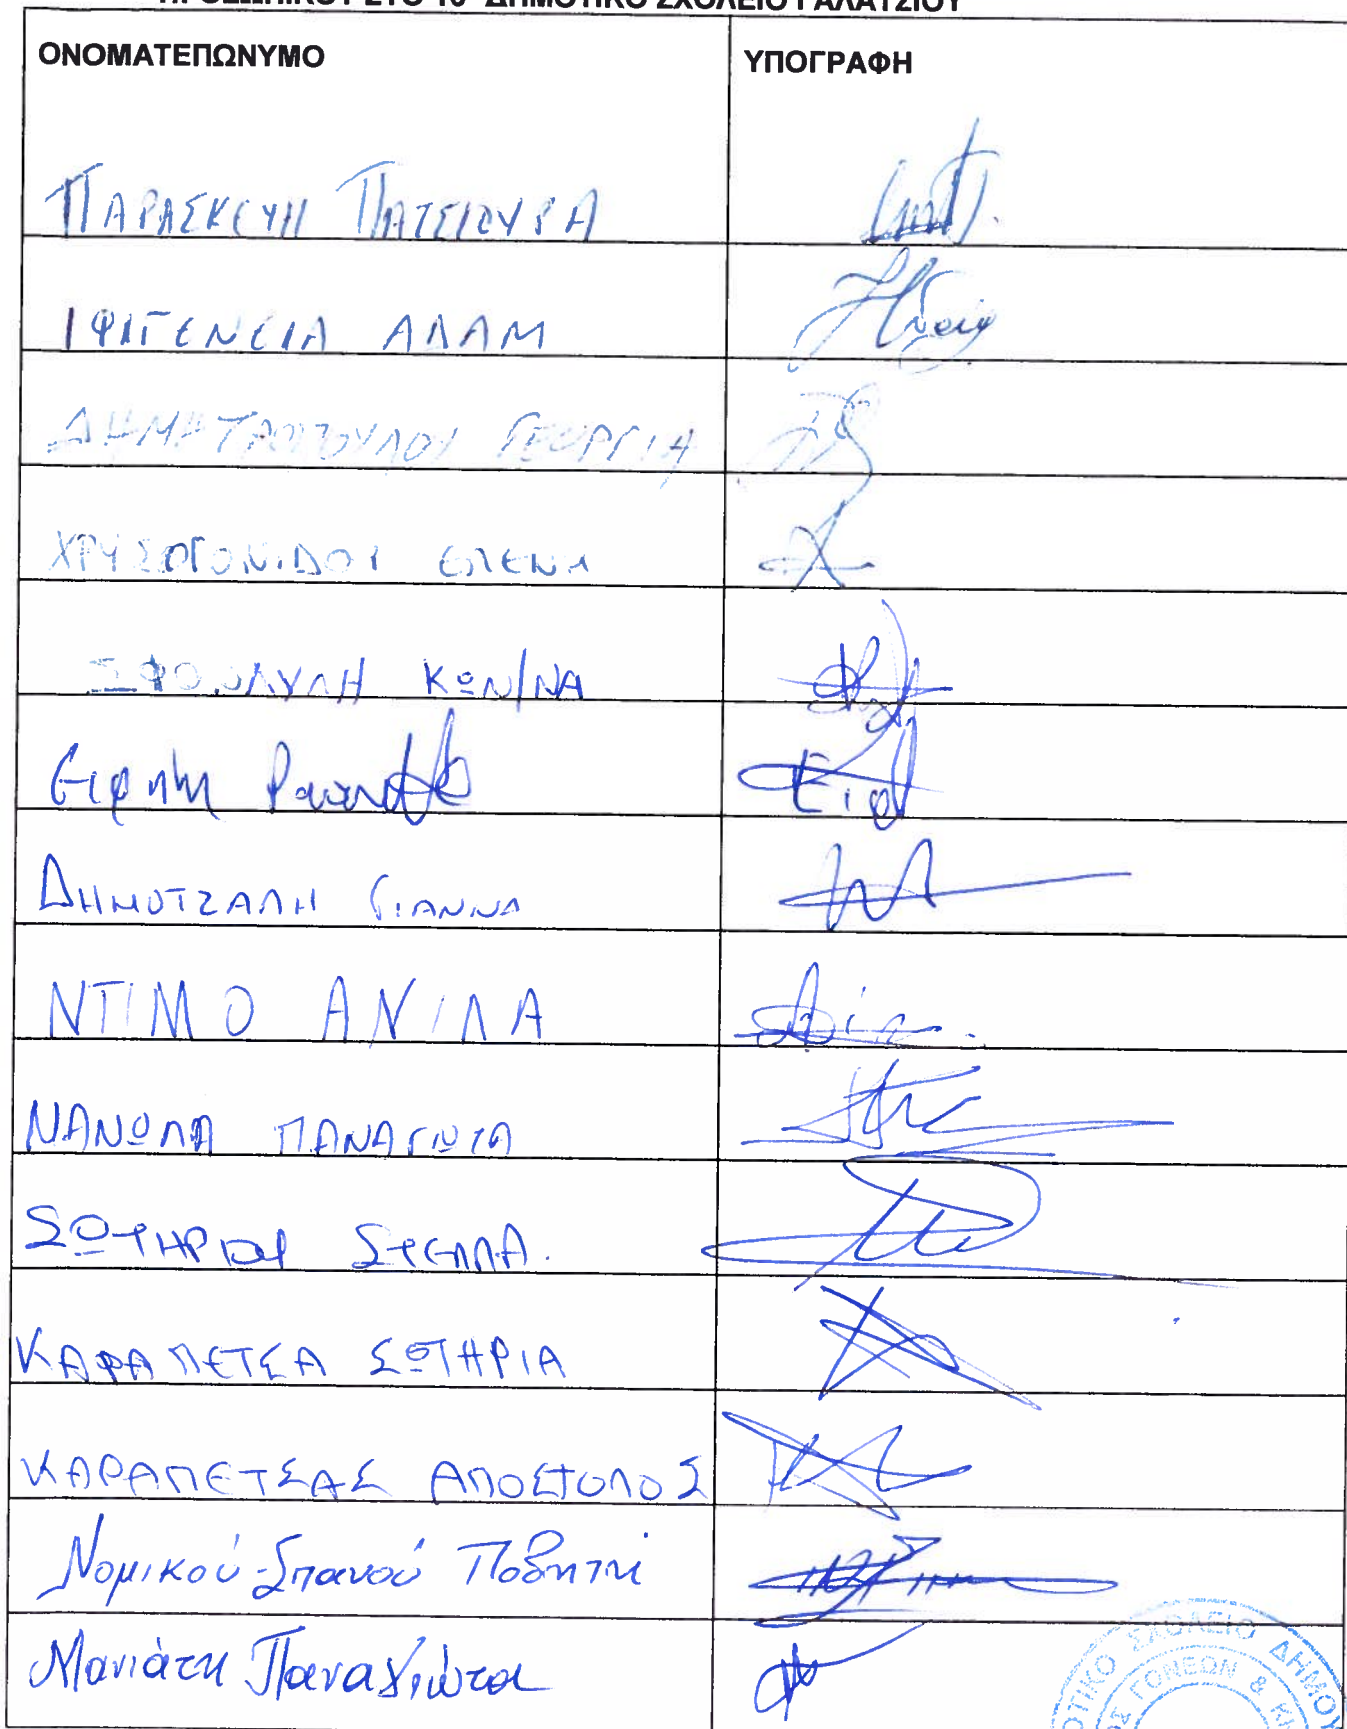 ΣΤΟ 10º ΔΗΜΟΤΙΚΟ ΣΧΟΛΕΙΟ ΓΑΛΑΤΣΙΟΥ
ΟΝΟΜΑΤΕΠΩΝΥΜΟ ΥΠΟΓΡΑΦΗ
ΠΑΡΑΣΚΕΥΗ ΠΑΤΣΙΟΥΡΑ
ΙΦΙΓΕΝΕΙΑ ΑΔΑΜ
ΔΗΜΗΤΡΟΠΟΥΛΟΥ ΓΕΩΡΓΙΑ
ΧΡΥΣΟΓΟΝΙΔΟΥ ΕΛΕΝΗ
ΚΩΝ/ΝΑ
Ειρήνη
ΔΗΜΟΤΖΑΛΗ ΓΙΑΝΝΑ
ΝΤΙΜΟ ΑΝΙΛΑ
ΝΑΝΩΛΑ ΠΑΝΑΓΙΩΤΑ
ΣΩΤΗΡΙΟΥ ΣΤΕΛΛΑ.
ΚΑΡΑΠΕΤΣΑ ΣΩΤΗΡΙΑ
ΚΑΡΑΠΕΤΣΑΣ ΑΠΟΣΤΟΛΟΣ
Νομικού-Σπανού Ποθητή
Μανιάτη Παναγιώτα
ΣΧΟΛΕΙΟ
ΓΟΝΕΩΝ &